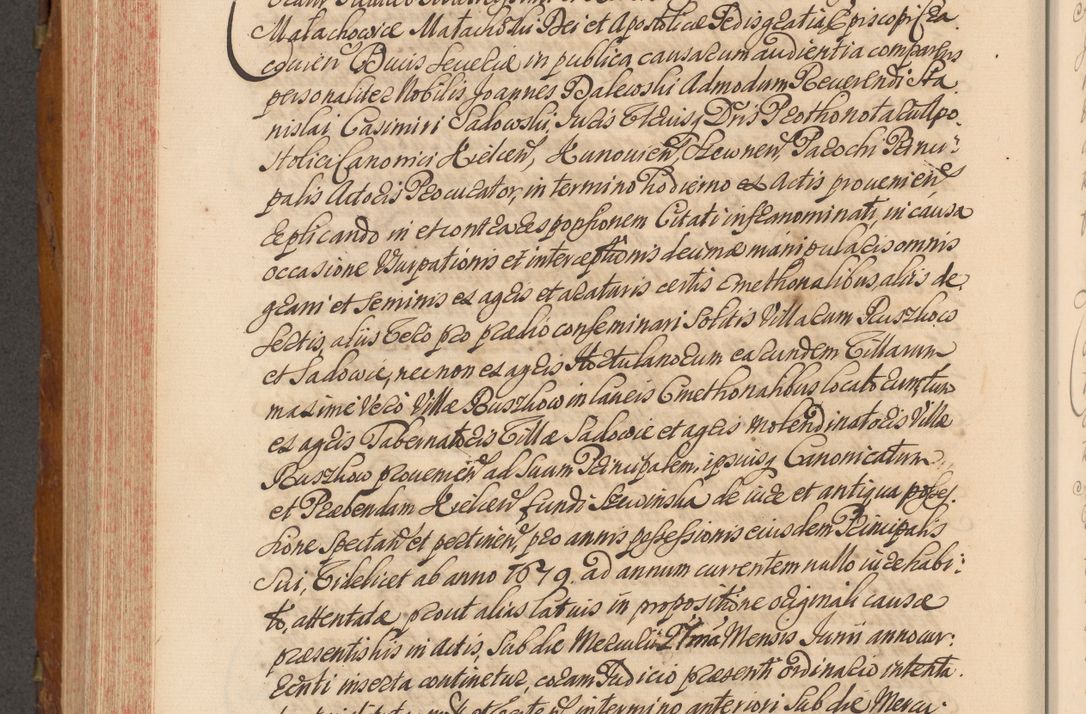 Małachowice Małachowski Dei et Apostolicæ Sedis gratia Episcopi Cra
covien Ducis Severiæ in publica causarum audientia comparens
personaliter Nobilis Joannes Dalewski Admodum Reverendi Sta
nislai Casimiri Sadowski, Juris Utriusq Dris Prothonotarii Apo.
stolici Canonici Kielcen, Kunovien, Skewnen, Parochi Princi
palis Actoris Procurator, in termino hodierno ex Actis provenien
replicando in et contra responsionem Citati infranominati, in causa
occasione Usurpationis et interceptionis decimæ manipularis omnis
grani et seminis ex agris et araturis certis Cmethonalibus aliis de
sertis, aliis vero pro prædio conseminari solitis Villarum Ruszkow
et Sadowie, nec non ex agris Hortulanorum earundem Villarum
maxime vero Villæ Ruszkow in laneis Cmethonalibus locatorum, tum
ex agris Tabernatoris Villæ Sadowie et agris molendinatoris Villæ
Ruszkow provenien ad suum Principalem, ipsiusq Canonicatum
et Præbendam Kielcen fundi de iure et antiqua posses
sione spectan et pertinen, pro annis possessionis eiusdem Principalis
sui, videlicet ab anno 1679. ad annum currentem nullo iure habi:
to, attentatæ prout alias latius in propositione originali causæ
præsentis his in Actis, sub die Mercurii Mensis Junii anno cur:
renti inserta continetur, coram Judicio præsenti ordinario intenta.
in termino anteriori sub die Mercu